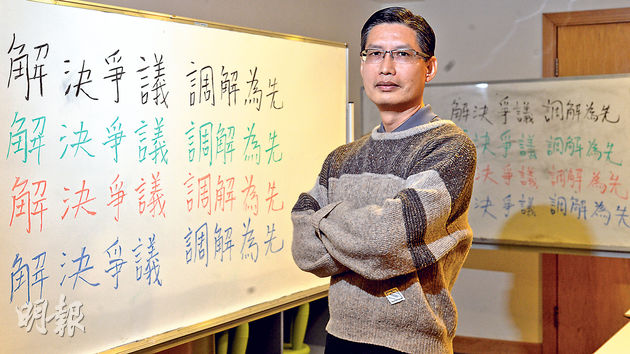 解決爭議 調解為先
解決爭議 調解為先
解決爭議 調解為先
解決爭議 調解為先
明報
解決爭議 調解為先
解決爭議 調解為先
解決爭議 調解為先
解決爭議 調解為先